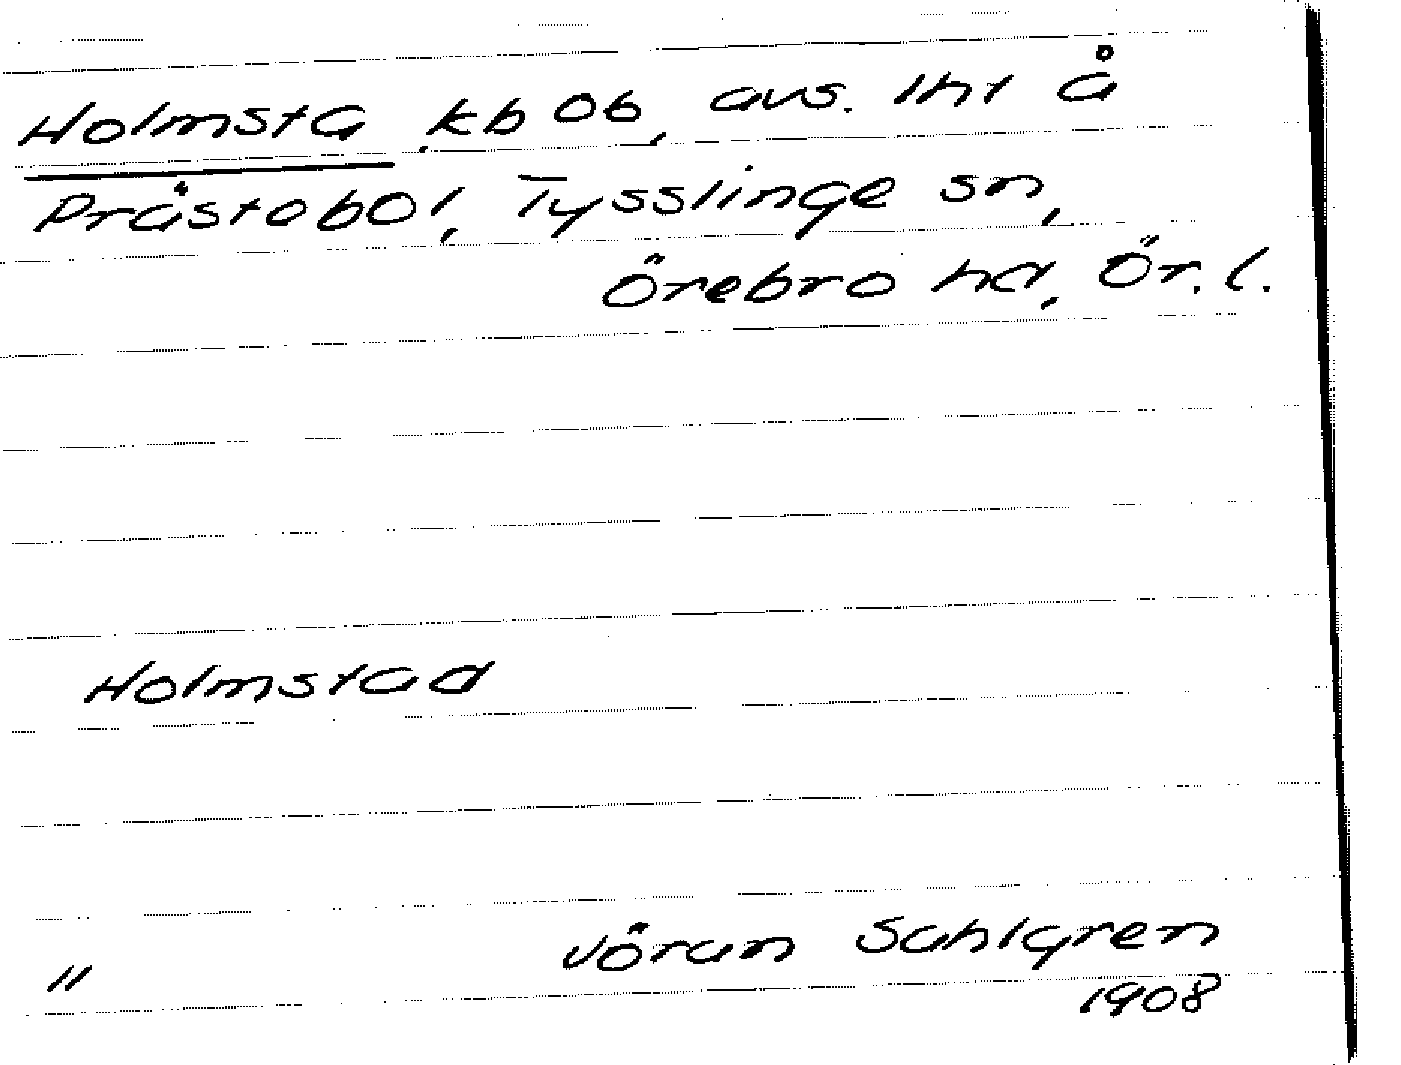 Holmsta, kb ob, avs. lht å
Prästebol, Tysslinge sn,
Örebro hd, Ör. l.
Holmstad
" Jöran Sahlgren
1908